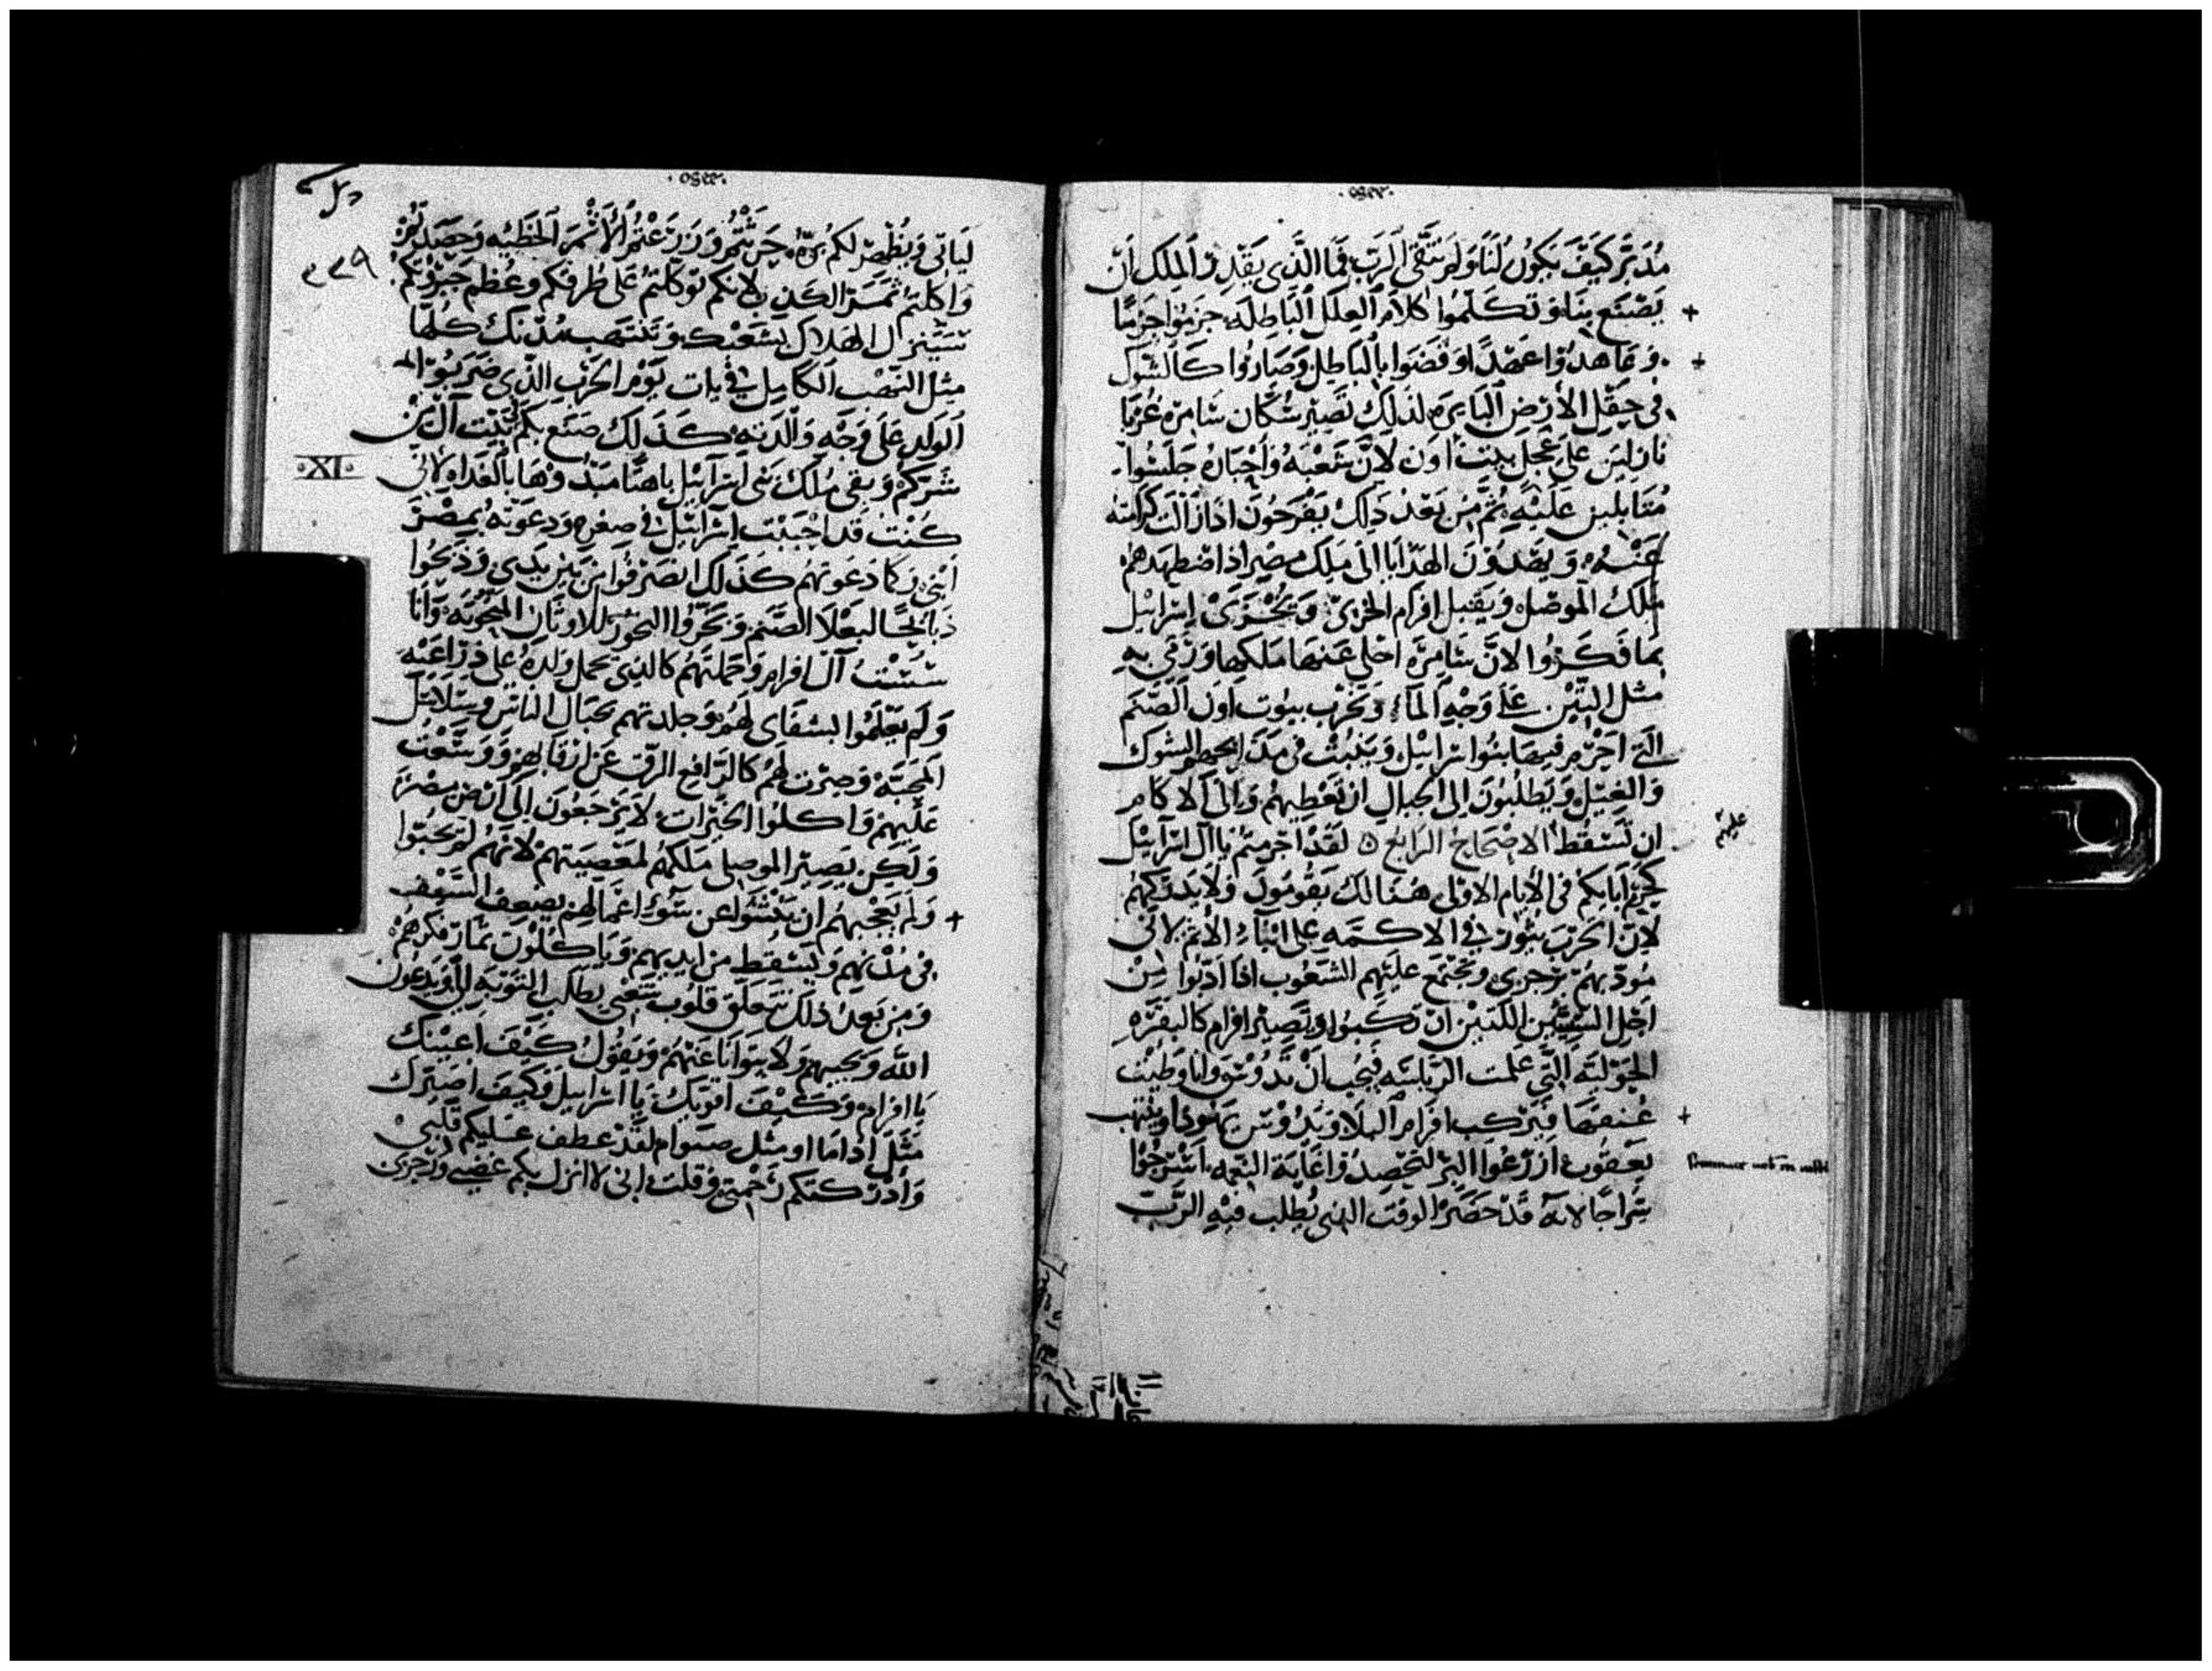 مُدَبّر كَيْفَ يَكُونُ لَنَا وَلَم نَتَّقِى الرَبّ فَما الَّذِى يَقْدِر المَلِك انّ
يَصْنَع بِنَا وَتكَلّمُوا كَلاَم العِلَل البَاطِله جَرمُوا جَرمًا
وَعَاهدُوا عَهْدًا وَقضَوا بالبَاطِل وَصَارُوا كَالشوك
فى حَقْلِ الأرْضِ البَايرَه لذلِكَ تَصِير سُكَّان سَامره غُربَا
نازلين عَلَى عِجْل بيت اوَن لأنَّ شَعْبَهُ وَاحْبَارهُ جَلسُوا
مُقَابلين عَلَيْه ثُمَّ مِن بَعْد ذلِكَ يَفْرَحُون اذا زَالَت كرَامته
عَنْهُ وَيصْعدُون الهدَايا الَى مَلِك مِصْر اذا اضطهَدهُم
مَلكُ الموصل وَيقبل افرام الخزىّ وَيُخْزَى اسْرَائيل
بمَا فكَرُوا لانَّ سَامِرَه اخلى عَنهَا مَلكهَا وَرُمى بهِ
مثل التبْن عَلَى وَجْهِ المَاء وَتخرب بيُوت اوَن الصَّنَم
الَتى اجْرَم فيهَا بنُوا اسْرائيل وَينبُت فى مَذَابحهم الشوك
وَالغيْل وَيَطلبُون الى الجبَال ان تغَطِيهُم وَالَى الاكام
ان تَسْقُط الاصْحَاح الرَابع لقَدْ اجرَمتُم يَا آل اسْرائيل
كجُرم ابَايكم فى الأيَام الاولى هنَالك يَقُومُون وَلا يدركهُم
لانّ الحَرْب يثور فى الاكَمَه عَلى ابْنَاء الأثم لانى
مُودبهُم بزجرى وَيجْتمع عليهم الشعُوب اذا ادّبُوا مِنْ
اجْلِ السَّيئتَيْن اللَتيْن ارتكبُوا وَتصِيْر افرام كالبَقَرَهِ
الحَوْليّه التَّى علمت الدِّيَاسَه فَيُحِب انْ تدُوْس وانا وَطِيْت
عُنقهَا فيَرْكب افرام البلاَ وَيَدُوْس يهُودَا وَينهب
يَعقُوب ازْرَعُوا البرّ لتحْصدُوا غايَة النِعمه اسْرجُوا
سِرَاجًا لانه قَدْ حَضَر الوقتَ الذِى يُطلب فيهِ الرَّبّ
لِيَاتى وَيُظْهر لكُم بِرّهُ حَرَثْتُم وَزَرَعْتُم الأثم الخَطِيّه وَحَصَدتُم
وَاكَلتُم ثمَرَة الكَذِب لانكم توَكّلتُم عَلى طُرقكم وعُظم جَبَرُوتكم
سَيَنزل الهَلاك بشَعْبك وَتنتهب مُدُنك كلهَا
مِثل النَّهْب الكَامِل فى بَات يَوْم الحَرْب الَّذى ضَرَبُوا
الوَلد عَلَى وَجْه وَالدته كذَلكَ صنع بكم بَيْت آل مِن
XI
شَركم وَبقى مَلك بنى اسْرآئيل باهتًا مَبْهُوتًا بالغَدَاه لانى
كنْتُ قَد احْبَبْت اسْرَائيل فى صغرهِ وَدعوته بمِصْرَ
ابنى وَكمَا دَعَوْتهُم كَذَلك انصَرفُوا من بَيْن يَدى وَذبحُوا
ذبَايحًا لبعْلاَ الصَّنم وَبَخّرُوا البخُوْر للاوثان المنحُوتَه وَانَا
سُسْتُ آل افرام وَحَملتهُم كالذى يحمل ولدهُ عَلى ذرَاعيْه
وَلم يَعْلَمُوا بشفَاى لهُم وجلدتهم بحبَال النَاس وبسلاسل
المَحَبّه وَصِرْت لهُم كالرّافع الرّق عَن ارقابهم وَوسّعْت
عَليهم وَاكلُوا الخَيْرَات لا يَرجعُونَ الَى ارض مصْرَ
وَلكِن يَصِيْر الموصلى مَلكهُم لمعْصيتهم لانّهُم لم يحبّوا
وَلم يعجبهُم ان يَكُفوا عن سُوء اعْمَالهم يضعف السَّيف
فى مُدنهم وَيسقط من ايديهم وَياكلون ثمَار فكرهمْ
وَمن بعد ذلكَ تتعَلق قلُوب شعبى بطلب التوبَه الىّ وَيدعون
الله وَيجيبهم وَلا يتوَانا عَنهُم وَيقُول كَيْفَ اعينك
يَا افرام وَكيْفَ انصرك يَا اسْرائيل وَكيفَ اصيّرك
مثل اداما او مثل صبوام لقَدْ عطف عليكم قَلبى
وَادركتكم رَحمتى وقلت انى لا انزل بكم غضبى وَزجرى